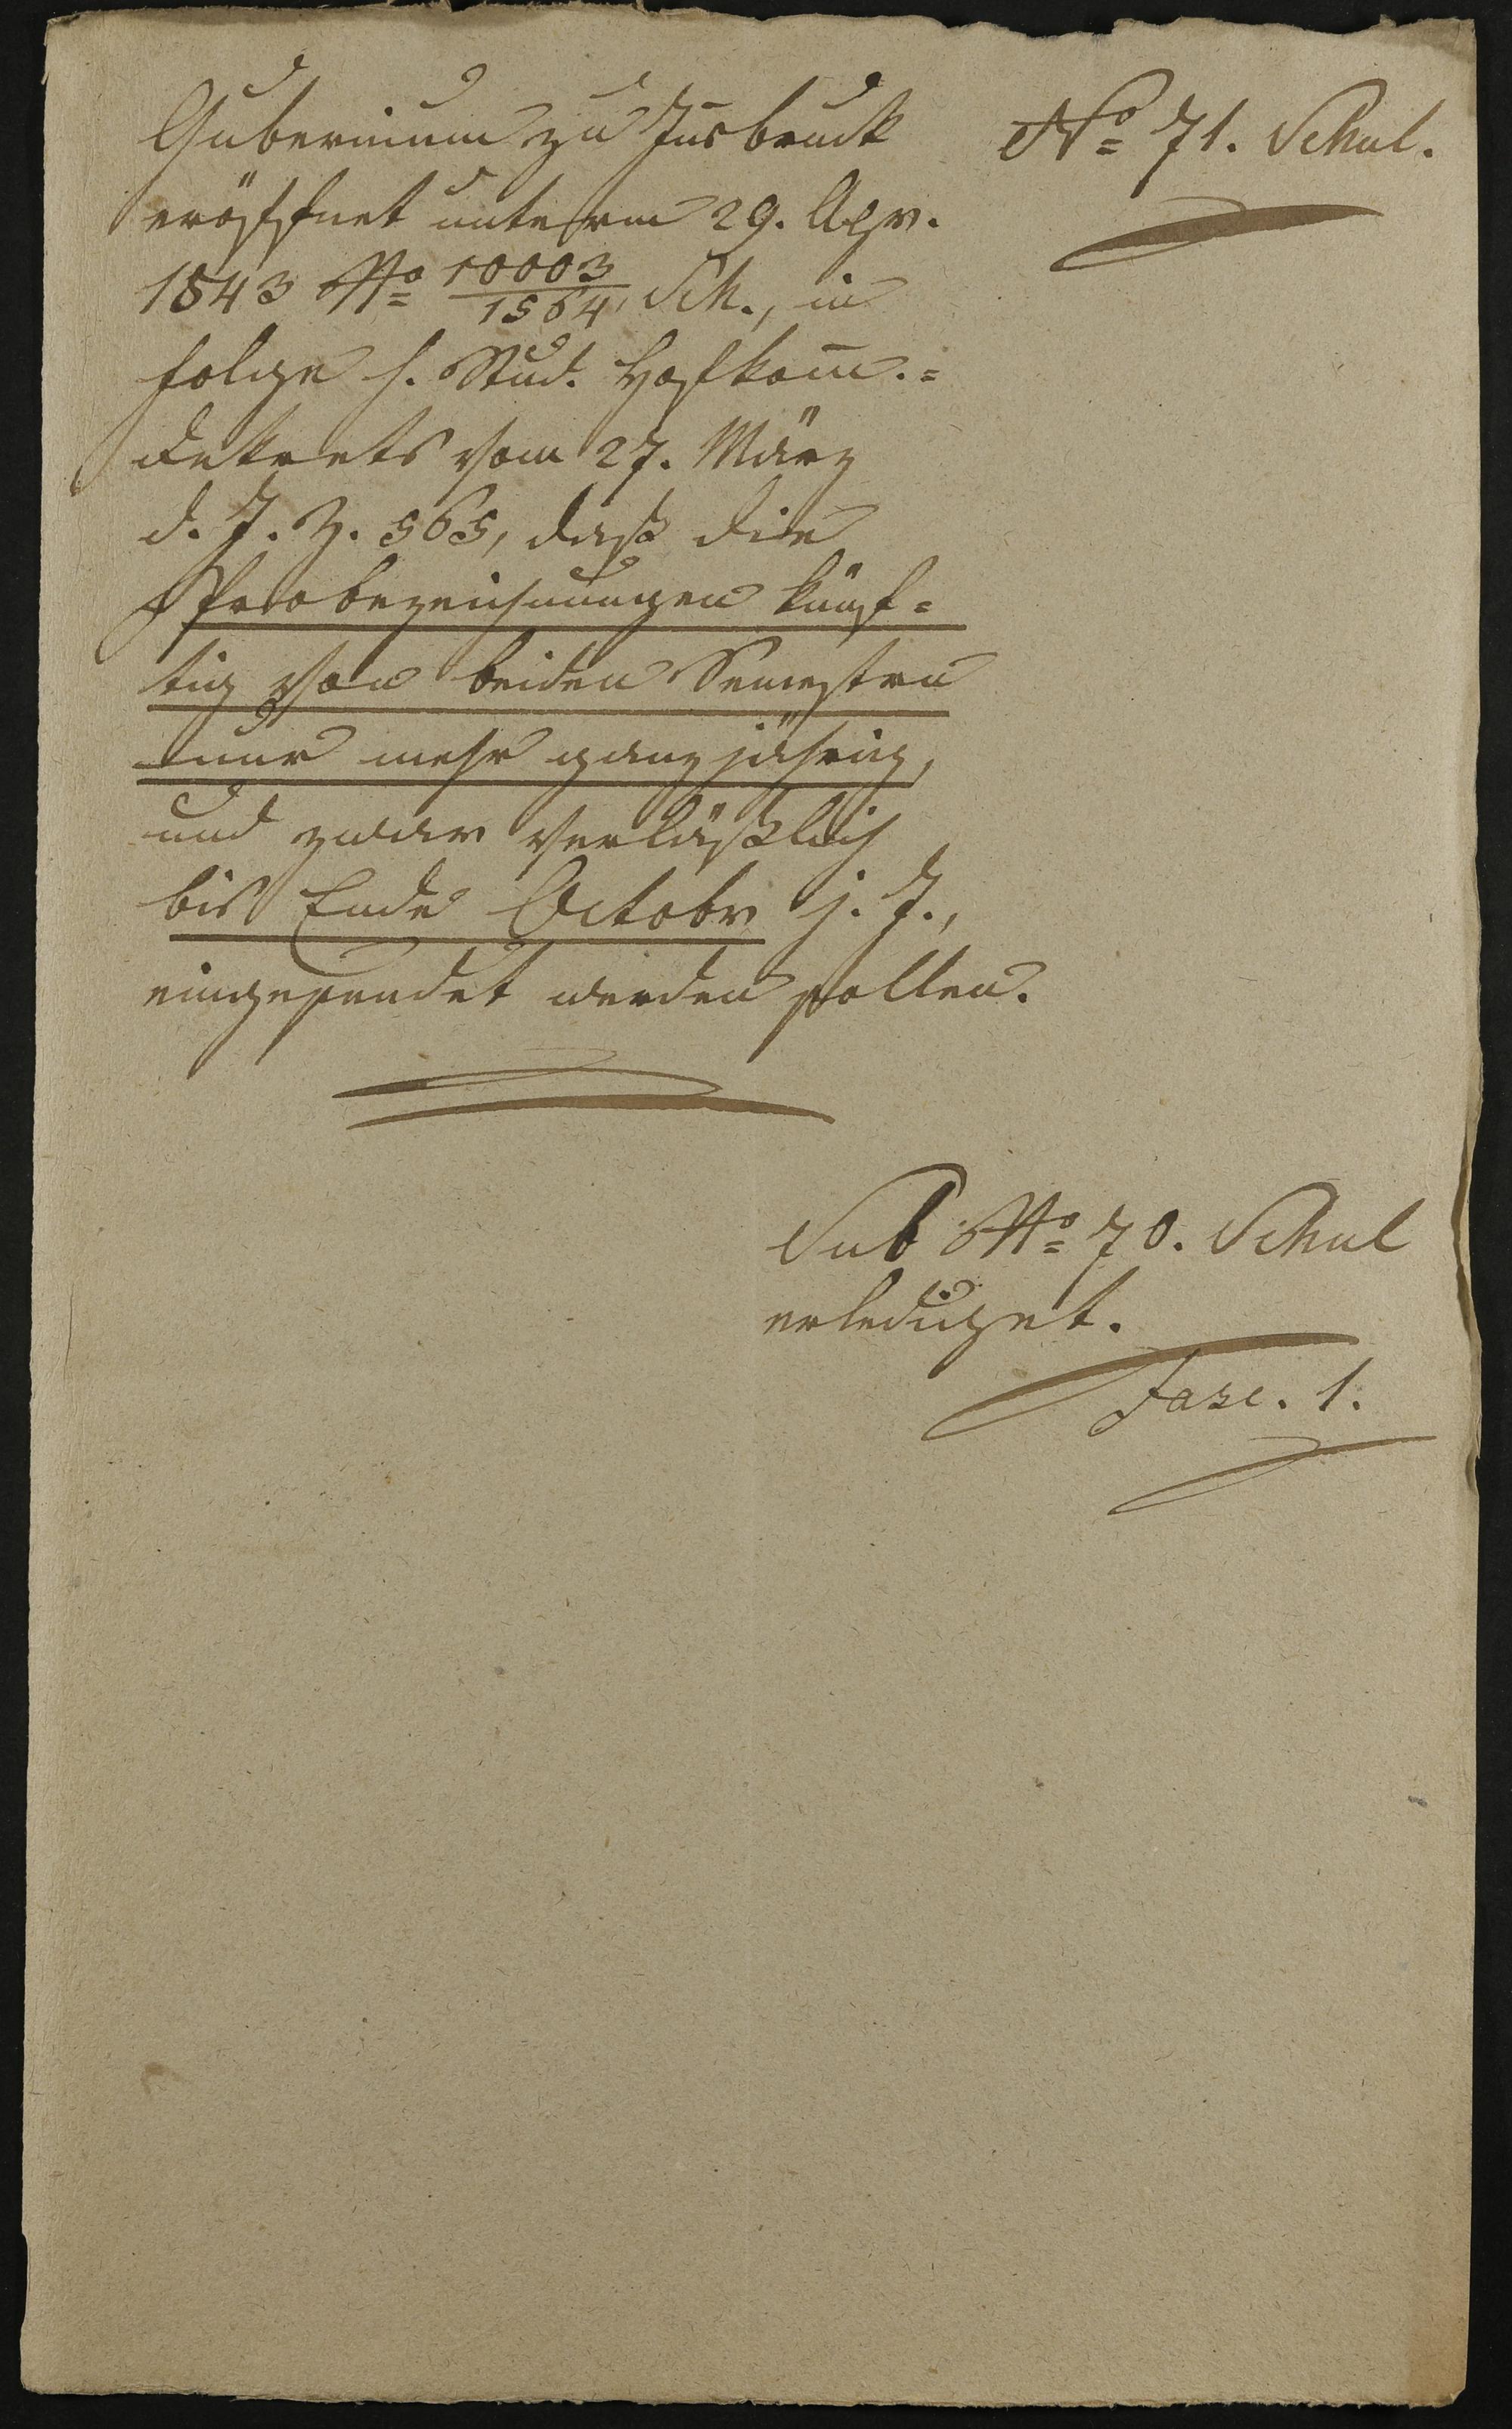 Gubernium zu Insbruck
eröffnet unterm 29. Apr.
1843 No 10003/1564 Sch., in
folge h. Stud. Hofkom̄.=
dekrets vom 27. März
d. J. Z. 565, daß die
Probezeichnungen künf=
tig von beiden Semestern
nur mehr ganzjährig,
und zwar verläßlich
bis Ende Octobr j. J.,
eingesendet werden sollen.
No 71. Schul.
Sub No 70. Schul
erlediget.
Fasc. 1.